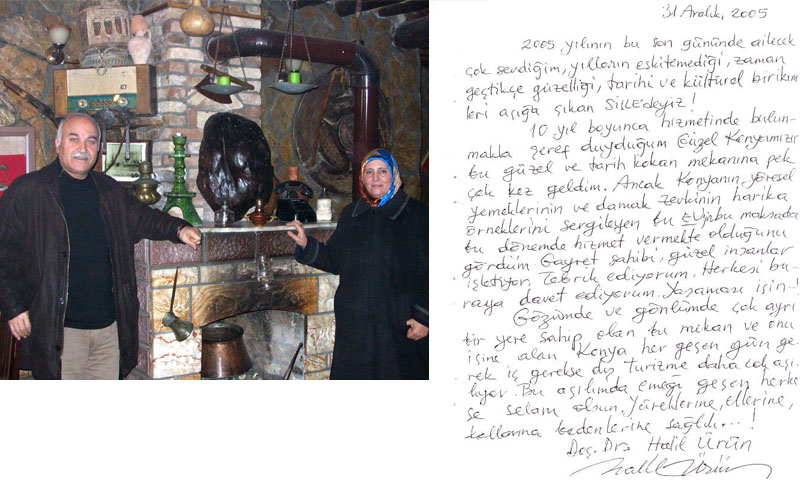 31 Aralık, 2005
2005 yılının bu son gününde ailecek
çok sevdiğim, yılların eskitemediği, zaman
geçtikçe güzelliği, tarihi ve kültürel birikim
leri açığa çıkan SİLLE'deyiz!
10 yıl boyunca hizmetinde bulun-
makla şeref duyduğum Güzel Konyamızın
bu güzel ve tarih kokan mekanına pek
çok kez geldim. Ancak Konyanın, yöresel
yemeklerinin ve damak zevkinin harika
örneklerini sergileyen bu EVin bu maksadla
bu dönemde hizmet vermekte olduğunu
gördüm. Gayret sahibi, güzel insanlar
işletiyor. Tebrik ediyorum. Herkesi bu-
raya davet ediyorum. Yaşaması için..!
Gözümde ve gönlümde çok ayrı
bir yere sahip olan bu mekan ve onu
içine alan Konya her geçen gün ge-
rek iç gerekse dış turizme daha çok açı-
lıyor. Bu açılımda emeği geçen herke-
se selam olsun. Yüreklerine, ellerine,
kollarına bedenlerine sağlık...!
Doç. Dr. Halil Ürün
Halil Ürün